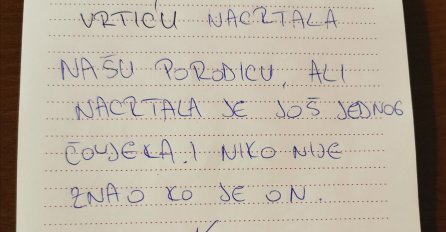 VRTIĆU NACRTALA
NAŠU PORODICU, ALI
NACRTALA JE JOŠ JEDNOG
ČOVJEKA. I NIKO NIJE
ZNAO KO JE ON.